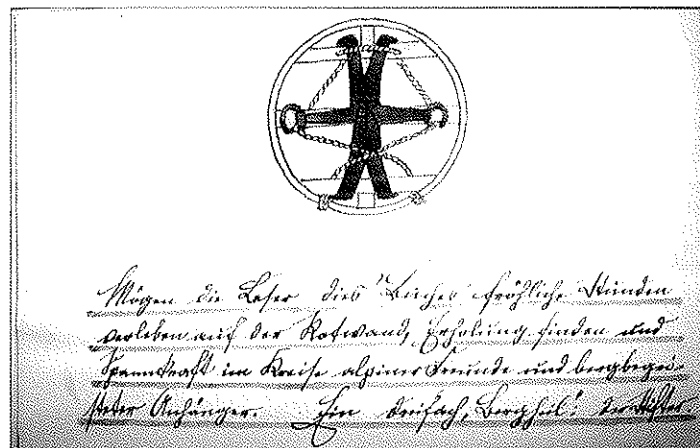 Mögen die Leser dies' Buches fröhliche Stunden
verleben auf der Rotwand, Erholung finden und
Spannkraft im Kreise alpiner Freunde und bergbegei-
sterter Anhänger. Ein dreifach, Bergheil! der Stifter